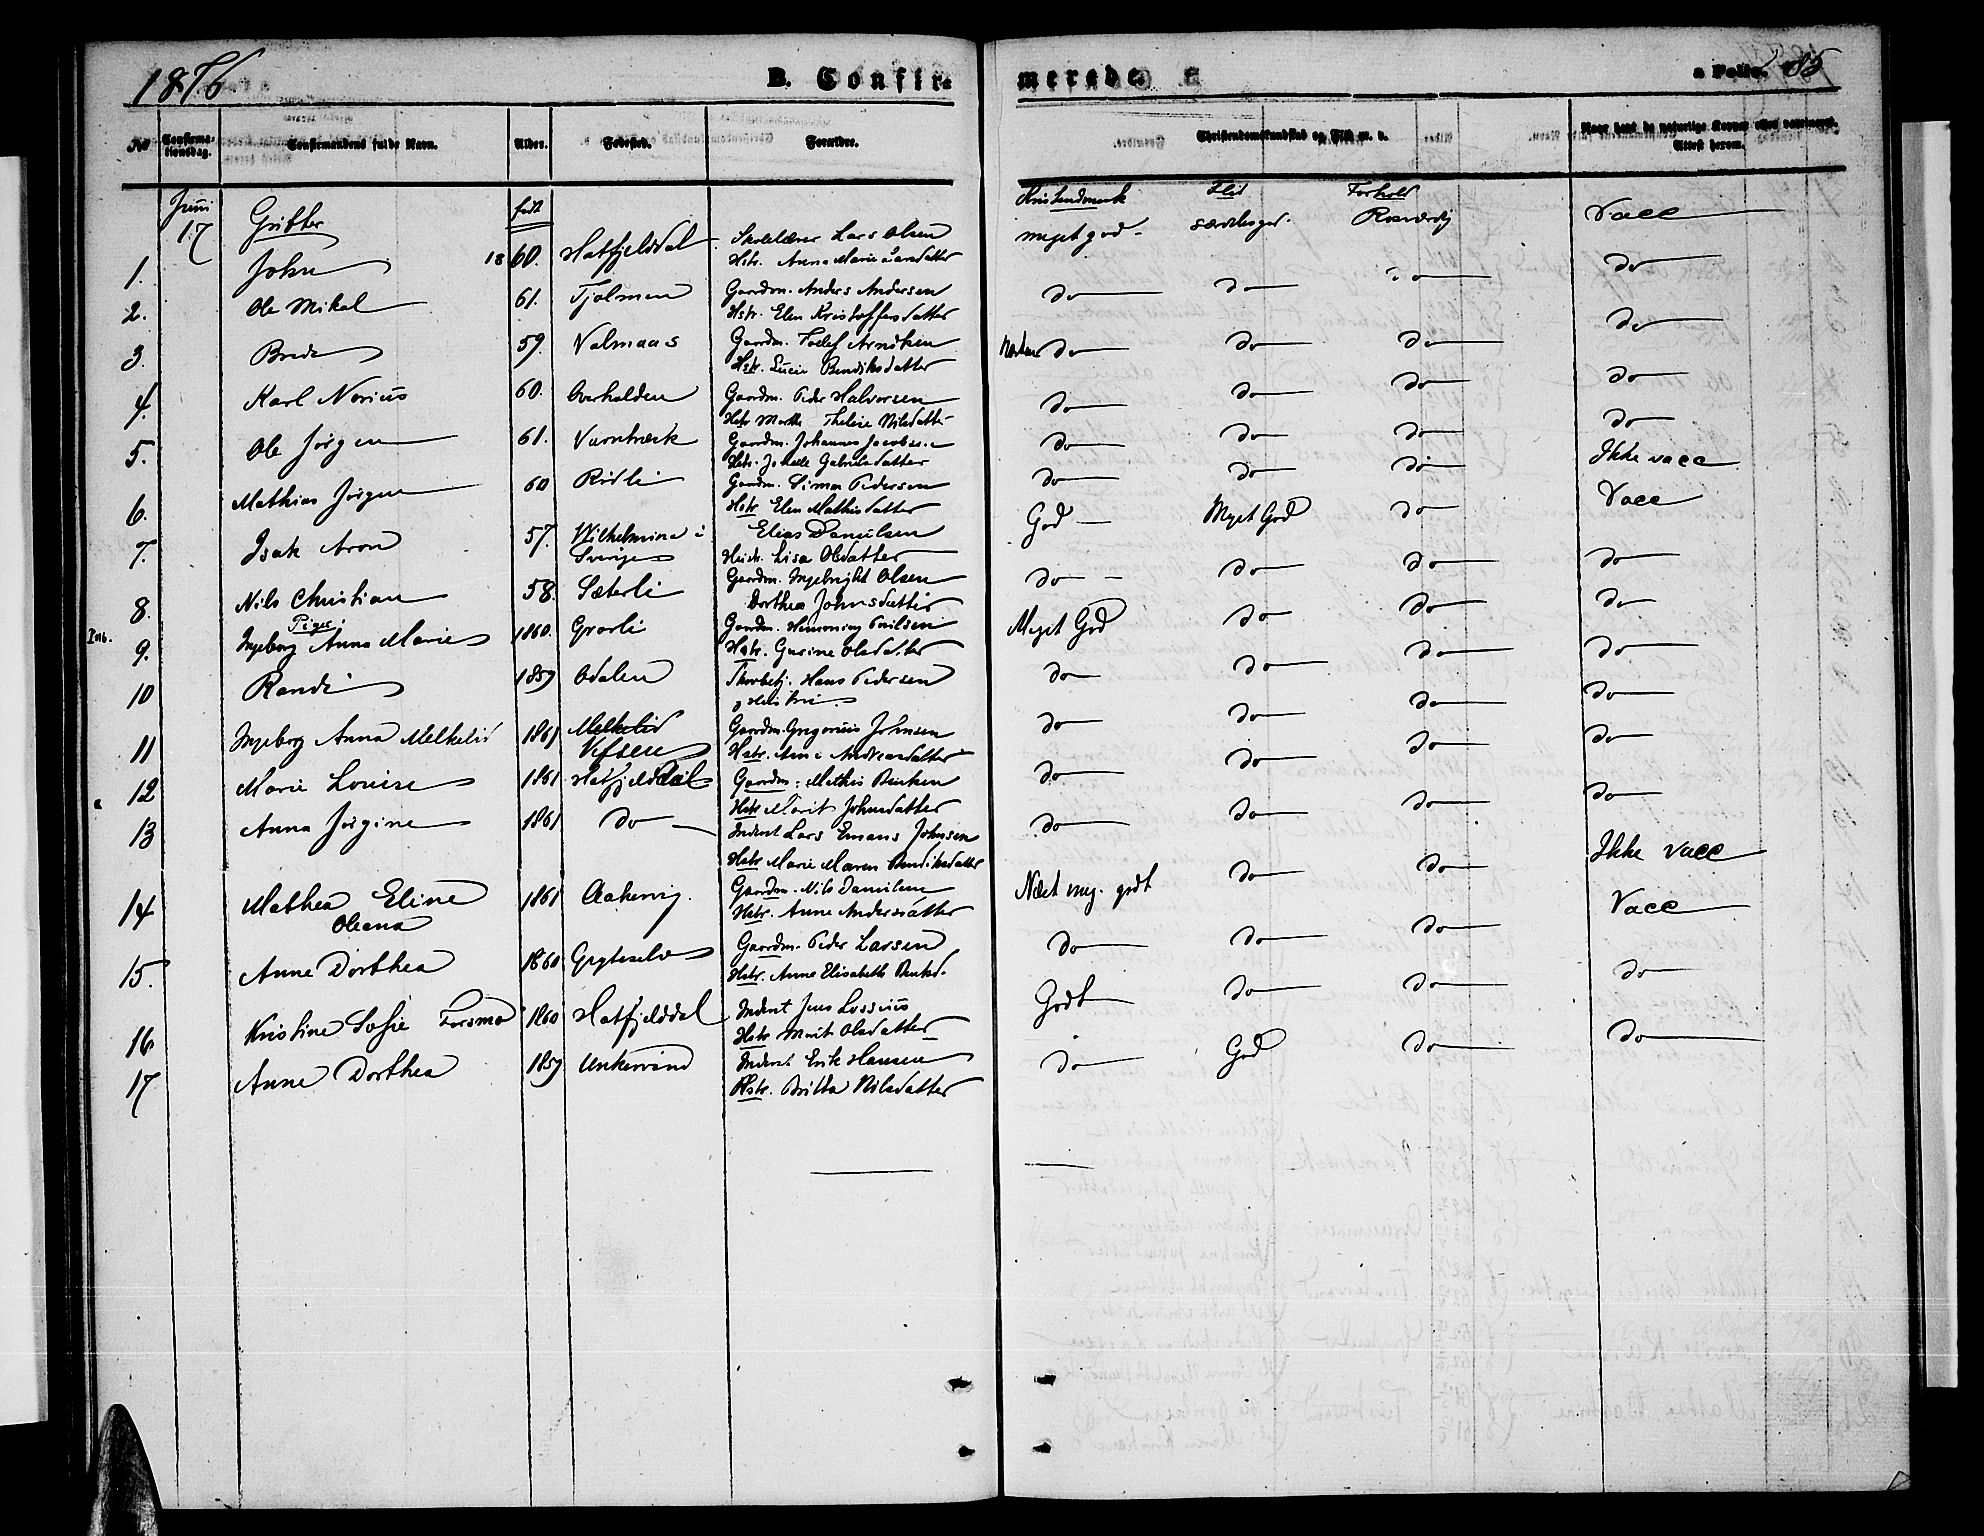 1876 B. Confirmerede. a Folio. 85
No Confirmationsdag. Confirmandens fulde Navn. Alder. Fødested. Forældre. Christendomskundskab og Flid m. v. Naar havt de naturlige Kopper eller vaccineret. Attest herom.
Juni 17 Gutter født Kristendomsk Flid Forhold
1. John 1860. Hatfjelddal Skolelærer Lars Olsen meget god særdeles god Rosværdig Vacc
Hstr. Anna Marie Larsdatter
2. Ole Mikal 61. Tjolmen Gaardm. Anders Andersen do do do do
Hstr. Elen Kristoffersdatter
3. Brede 59. Valmaas Gaardm. Tollef Arntsen næsten do do do do
Hstr. Lucie Bendiksdatter
4. Karl Norius 60. Overhalden Gaardm. Peder Halvorsen do do do do
Hstr Marthe Nilsdatter
5. Ole Jørgen 61. Varntræsk Gaardm. Johannes Jacobsen do do do do
Hstr. Gabrielsdatter
6. Mathias Jørgen 60 Gaardm. Simon Pedersen do do do Ikke vacc
Hstr Elen Mathisdatter
7. Isak Aron 57. Vilhelmina i Sverige Elias Danielsen God Meget God do Vacc
Hustr. Lisa Olsdatter
8. Nils Christian 58. Sæterli Gaardm. Ingebrigt Olsen do do do do
Dorthea Johnsdatter
Piger
9. Ingeborg Anna Marie 1860. Grorli Gaardm. Hemming Poulsen Meget God do do do
Hstr. Gurine Olsdatter
10 Randi 1859 Odalen Hans Pedersen do do do do
11 Ingeborg Anna Melkelid 1861 Melkelid Vefsen Gaardm. Gregorius Johnsen do do do do
Hstr. Ane Andreasdatter
12 Marie Lovise 1861 Hatfjelddal Gaardm. Mathis do do do do
Hstr Marit Johnsdatter
13 Anna Jørgine 1861 do Inderst Lars Johnsen do do do do
Hstr Marie Maren Bendiksdatter
14 Mathea Eline Oleana 1861 Aakervig. Gaardm. Nils Danielsen Næst meg. godt do do Ikke vacc
Hstr. Anne Andersdatter
15. Anne Dorthea 1860 Gryteselv Gaardm. Peder Larsen do do do Vacc
Hstr. Anne Elisabeth
16 Kristine Sofie Forsmo 1860 Hatfjelddal Inderst Jens Lossius Godt do do do
Hstr Marit Olsdatter
17 Anne Dorthea 1859 Unkervand Inderst Erik Hansen do God do do
Hstr. Britta Nilsdatter